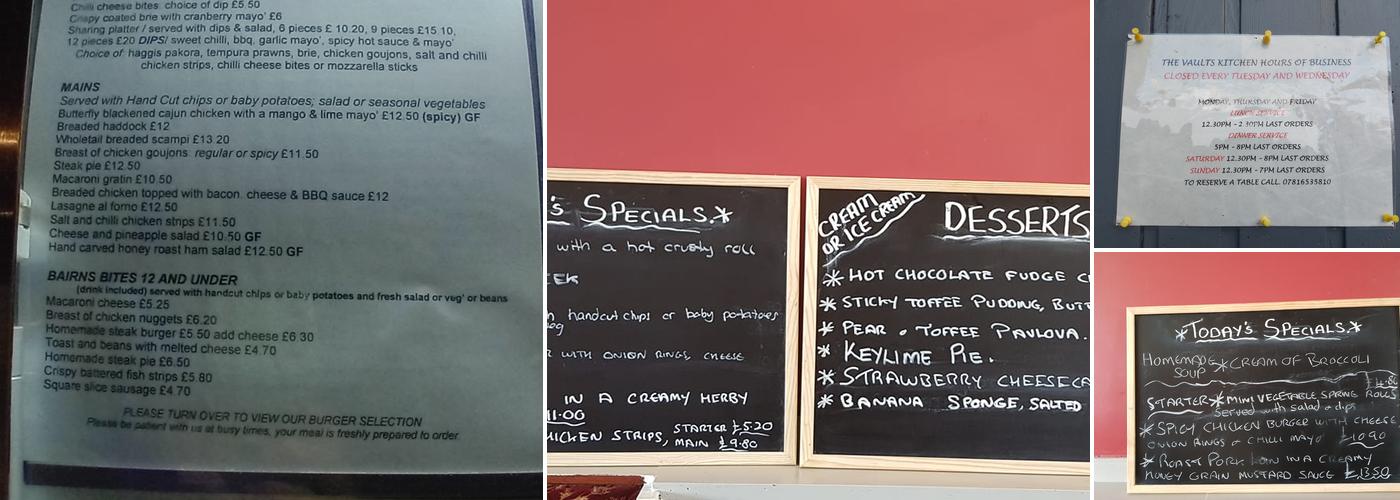 Chilli cheese bites: choice of dip £5.50
Crispy coated brie with cranberry mayo' £6
Sharing platter / served with dips & salad, 6 pieces £ 10.20, 9 pieces £15.10,
12 pieces £20 DIPS/ sweet chilli, bbq, garlic mayo', spicy hot sauce & mayo'
Choice of: haggis pakora, tempura prawns, brie, chicken goujons, salt and chilli
chicken strips, chilli cheese bites or mozzarella sticks
MAINS
Served with Hand Cut chips or baby potatoes; salad or seasonal vegetables
Butterfly blackened cajun chicken with a mango & lime mayo' £12.50 (spicy) GF
Breaded haddock £12
Wholetail breaded scampi £13.20
Breast of chicken goujons: regular or spicy £11.50
Steak pie £12.50
Macaroni gratin £10.50
Breaded chicken topped with bacon, cheese & BBQ sauce £12
Lasagne al forno £12.50
Salt and chilli chicken strips £11.50
Cheese and pineapple salad £10.50 GF
Hand carved honey roast ham salad £12.50 GF
BAIRNS BITES 12 AND UNDER
(drink included) served with handcut chips or baby potatoes and fresh salad or veg' or beans
Macaroni cheese £5.25
Breast of chicken nuggets £6.20
Homemade steak burger £5.50 add cheese £6.30
Toast and beans with melted cheese £4.70
Homemade steak pie £6.50
Crispy battered fish strips £5.80
Square slice sausage £4.70
PLEASE TURN OVER TO VIEW OUR BURGER SELECTION
Please be patient with us at busy times, your meal is freshly prepared to order.
's SPECIALS.*
with a hot crusty roll
EEK
handcut chips or baby potatoes
WITH ONION RINGS, CHEESE
IN A CREAMY HERBY
11.00
HICKEN STRIPS, STARTER £5.20
MAIN £9.80
CREAM OR ICE CREAM
DESSERTS
* HOT CHOCOLATE FUDGE C
* STICKY TOFFEE PUDDING, BUTT
* PEAR & TOFFEE PAVLOVA.
* KEYLIME PIE.
* STRAWBERRY CHEESECA
* BANANA SPONGE, SALTED
THE VAULTS KITCHEN HOURS OF BUSINESS
CLOSED EVERY TUESDAY AND WEDNESDAY
MONDAY, THURSDAY AND FRIDAY
LUNCH SERVICE
12.30PM - 2.30PM LAST ORDERS
DINNER SERVICE
5PM - 8PM LAST ORDERS
SATURDAY 12.30PM - 8PM LAST ORDERS
SUNDAY 12.30PM - 7PM LAST ORDERS
TO RESERVE A TABLE CALL. 07816535810
*TODAY'S SPECIALS.*
HOMEMADE SOUP * CREAM OF BROCCOLI
STARTER * MINI VEGETABLE SPRING ROLLS
Served with salad & dips
* SPICY CHICKEN BURGER WITH CHEESE
ONION RINGS & CHILLI MAYO £10.90
* ROAST PORK LOIN IN A CREAMY
HONEY GRAIN MUSTARD SAUCE £13.50